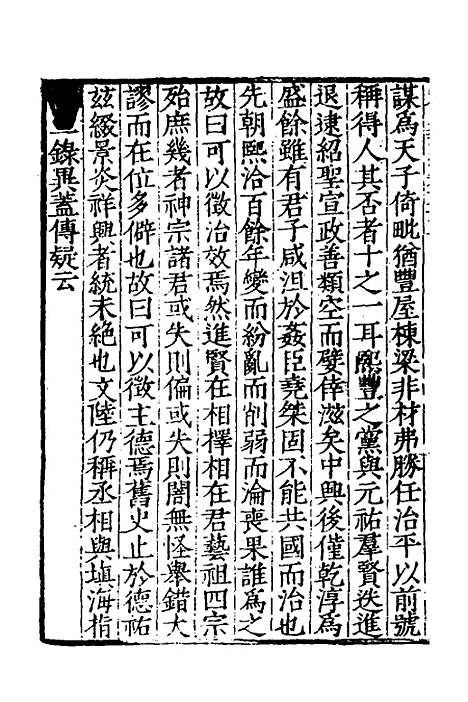 謀爲天子倚毗猶豐屋棟梁非材弗勝任治平以前號
稱得人其否者十之一耳熙豐之黨與元祐羣賢迭進
退逮紹聖宣政善類空而嬖倖滋矣中興後僅乾淳爲
盛餘雖有君子咸沮於姦臣堯桀固不能共國而治也
先朝熙洽百餘年變而紛亂而削弱而淪喪果誰爲之
故曰可以徵治效焉然進賢在相擇相在君藝祖四宗
殆庶幾者神宗諸君或失則偏或失則闇無怪舉錯大
謬而在位多僻也故曰可以徵主德焉舊史止於德祐
玆綴景炎祥興者統未絶也文陸仍稱丞相與塡海指
一錄異蓋傳疑云